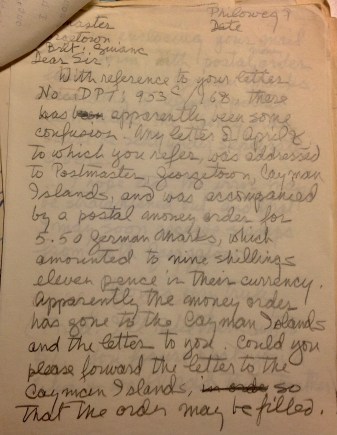 Philoweg 7
Postmaster Date
Georgetown,
Brit. Guiana
Dear Sir
With reference to your letter
No DPT: 953C/68, there
has been apparently been some
confusion. My letter of April 8
to which you refer, was addressed
to Postmaster, Georgetown, Cayman
Islands, and was accompanied
by a postal money order for
5.50 German Marks, which
amounted to nine shillings
eleven pence in their currency.
Apparently the money order
has gone to the Cayman Islands
and the letter to you. Could you
please forward the letter to the
Cayman Islands, in order so
that the order may be filled.